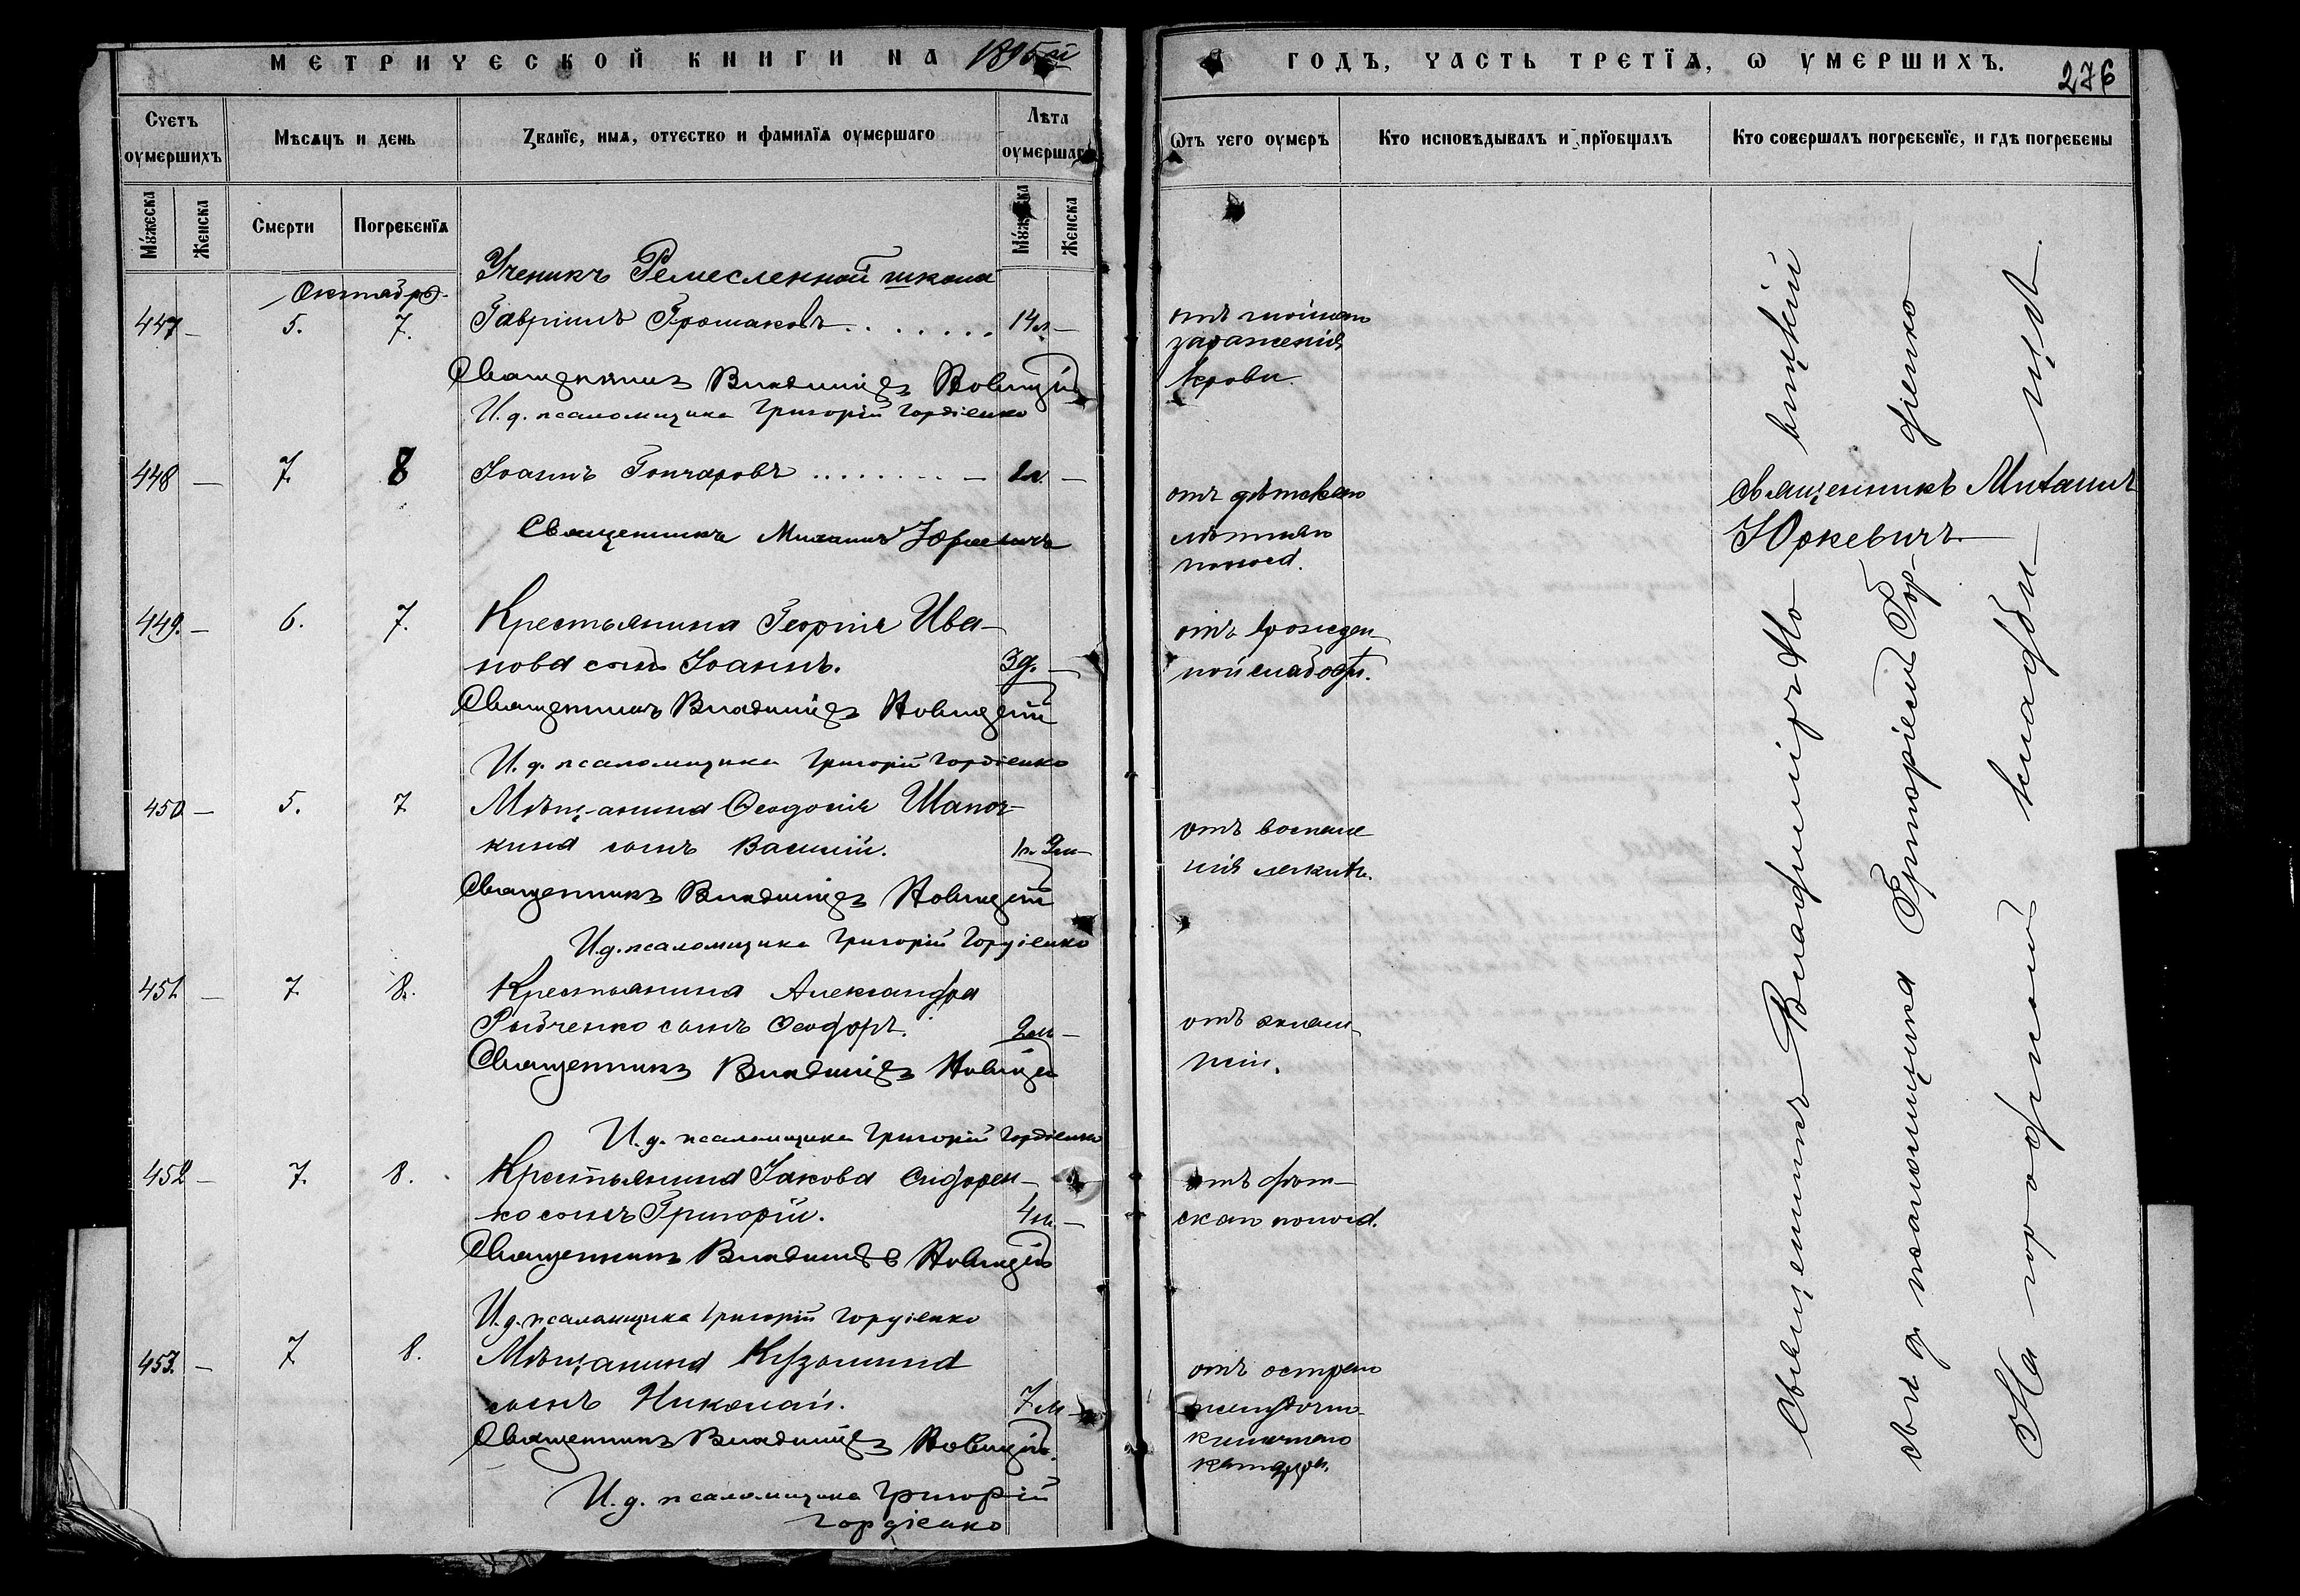 МЕТРИЧЕСКОЙ КНИГИ НА 1895й
ГОДЪ, ЧАСТЬ ТРЕТІѦ, Ѡ УМЕРШИХЪ.
276
Счетъ оумершихъ
Мѣсѧцъ и день
Званїе, имѧ, отчество и фамилїѧ оумершаго
Лѣта оумершаго
Ѿтъ чего оумеръ
Кто исповѣдывалъ и прїобщалъ
Кто совершалъ погребенїе, и гдѣ погребены
Мꙋжеска
Женска
Смерти
Погребенїѧ
Мꙋжеска
Женска
Октябрь
Ученикъ Ремесленной школы
447 — 5. 7. Гавріилъ Громаковъ 14 л —
отъ
зараженія
крови.
Священникъ Владиміръ Новицкій
И. д. псаломщика Григорій Гордіенко
448 — 7. 8 Іоаннъ Гончаровъ — 1 л. —
отъ дѣтскаго
лѣтняго
поноса.
Священникъ Михаилъ Юркевичъ
Священникъ Михаилъ
Юркевичъ
449. — 6. 7. Крестьянина Георгія Ива-
нова сынъ Іоаннъ. 3 д. —
отъ врожден-
ной слабости.
Священникъ Владиміръ Новицкій
И. д. псаломщика Григорій Гордіенко
450 — 5. 7 Мѣщанина Ѳеодосія Шапоч-
кина сынъ Василій.
отъ воспале
нія легкихъ.
Священникъ Владиміръ Новицкій
И. д. псаломщика Григорій Гордіенко
451 — 7. 8. Крестьянина Александра
сынъ Ѳеодоръ. 2 м —
отъ эклам-
псіи.
Священникъ Владиміръ Новицкій
И. д. псаломщика Григорій Гордіенко
452 — 7. 8. Крестьянина Іакова Сидорен-
ко сынъ Григорій. 4 м. —
отъ дѣт-
скаго поноса.
Священникъ Владиміръ Новицкій
И. д. псаломщика Григорій Гордіенко
453. — 7 8. Мѣщанина Кузьмина
сынъ Николай. 7 м —
отъ остраго
желудочно-
кишечнаго
катарра.
Священникъ Владиміръ Новицкій
И. д. псаломщика Григорій
Гордіенко
Священникъ Владиміръ Но-вицкій
съ и д псаломщика Григоріемъ Гор-діенко
На городскомъ кладби-щѣ